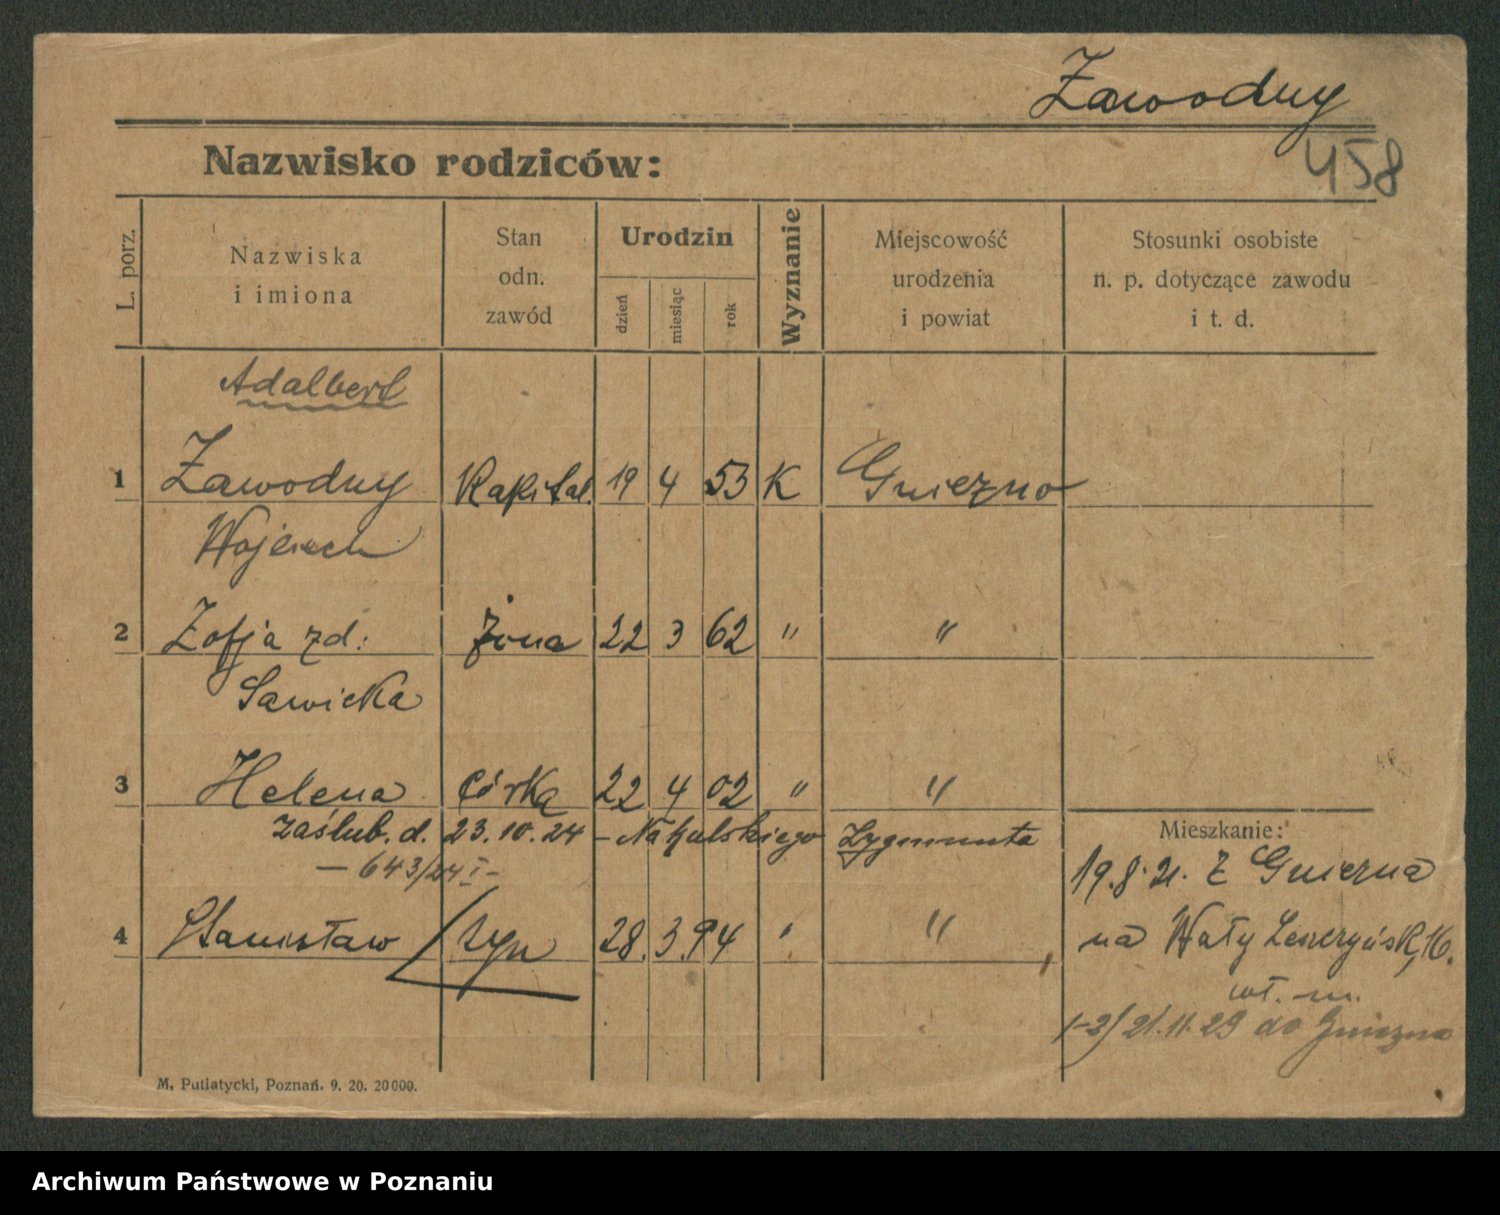 Zawodny
458
Nazwisko rodziców:
L. porz.
Nazwiska
i imiona
Stan
odn.
zawód
Urodzin
dzień
miesiąc
rok
Wyznanie
Miejscowość
urodzenia
i powiat
Stosunki osobiste
n. p. dotyczące zawodu
i t. d.
Adalbert
1 Zawodny Kapital. 19 4 53 K Gniezno
Wojciech
2 Zofja zd: żona 22 3 62 " "
Sawicka
3 Helena córka 22 4 02 " "
zaślub. d. 23.10.24 – Zygmunta
– 643/24 I –
4 Stanisław syn 28. 3. 94 " "
Mieszkanie:
19.8.21. z Gniezna
na Wały Leszczyńsk. 16.
wł. m.
1-2/ 21.11.29 do Gniezna
M. Putiatycki, Poznań. 9. 20. 20000.
Archiwum Państwowe w Poznaniu